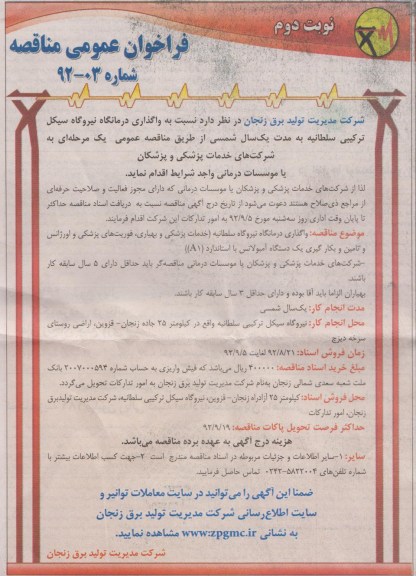 نوبت دوم
فراخوان عمومی مناقصه
شماره ۰۳-۹۲
شرکت مدیریت تولید برق زنجان در نظر دارد نسبت به واگذاری درمانگاه نیروگاه سیکل
ترکیبی سلطانیه به مدت یک‌سال شمسی از طریق مناقصه عمومی یک مرحله‌ای به
شرکت‌های خدمات پزشکی و پزشکان
یا موسسات درمانی واجد شرایط اقدام نماید.
لذا از شرکت‌های خدمات پزشکی و پزشکان یا موسسات درمانی که دارای مجوز فعالیت و صلاحیت حرفه‌ای
از مراجع ذی‌صلاح هستند دعوت می‌شود از تاریخ درج آگهی مناقصه نسبت به دریافت اسناد مناقصه حداکثر
تا پایان وقت اداری روز سه‌شنبه مورخ ۹۲/۹/۵ به امور تدارکات این شرکت اقدام فرمایند.
موضوع مناقصه: واگذاری درمانگاه نیروگاه سلطانیه (خدمات پزشکی و بهیاری، فوریت‌های پزشکی و اورژانس
و تامین و بکار گیری یک دستگاه آمبولانس با استاندارد (A۱))
-شرکت‌های خدمات پزشکی و پزشکان یا موسسات درمانی مناقصه‌گر باید حداقل دارای ۵ سال سابقه کار
باشند.
بهیاران الزاما باید آقا بوده و دارای حداقل ۳ سال سابقه کار باشند.
مدت انجام کار: یک‌سال شمسی
محل انجام کار: نیروگاه سیکل ترکیبی سلطانیه واقع در کیلومتر ۲۵ جاده زنجان- قزوین، اراضی روستای
سرخه دیزج
زمان فروش اسناد: ۹۲/۸/۲۱ لغایت ۹۲/۹/۵
مبلغ خرید اسناد مناقصه: ۳۰۰۰۰۰ ریال می‌باشد که فیش واریزی به حساب شماره ۲۰۰۷۰۰۰۵۹۴ بانک
ملت شعبه سعدی شمالی زنجان به‌نام شرکت مدیریت تولید برق زنجان به امور تدارکات تحویل می‌گردد.
محل فروش اسناد: کیلومتر ۲۵ آزادراه زنجان- قزوین، نیروگاه سیکل ترکیبی سلطانیه، شرکت مدیریت تولیدبرق
زنجان، امور تدارکات
حداکثر فرصت تحویل پاکات مناقصه: ۹۲/۹/۱۹
هزینه درج آگهی به عهده برده مناقصه می‌باشد.
سایر: ۱-سایر اطلاعات و جزئیات مربوطه در اسناد مناقصه مندرج است ۲-جهت کسب اطلاعات بیشتر با
شماره تلفن‌های ۵۸۲۲۰۰۴-۰۲۴۲ تماس حاصل فرمایید.
ضمنا این آگهی را می‌توانید در سایت معاملات توانیر و
سایت اطلاع‌رسانی شرکت مدیریت تولید برق زنجان
به نشانی www.zpgmc.ir مشاهده نمایید.
شرکت مدیریت تولید برق زنجان